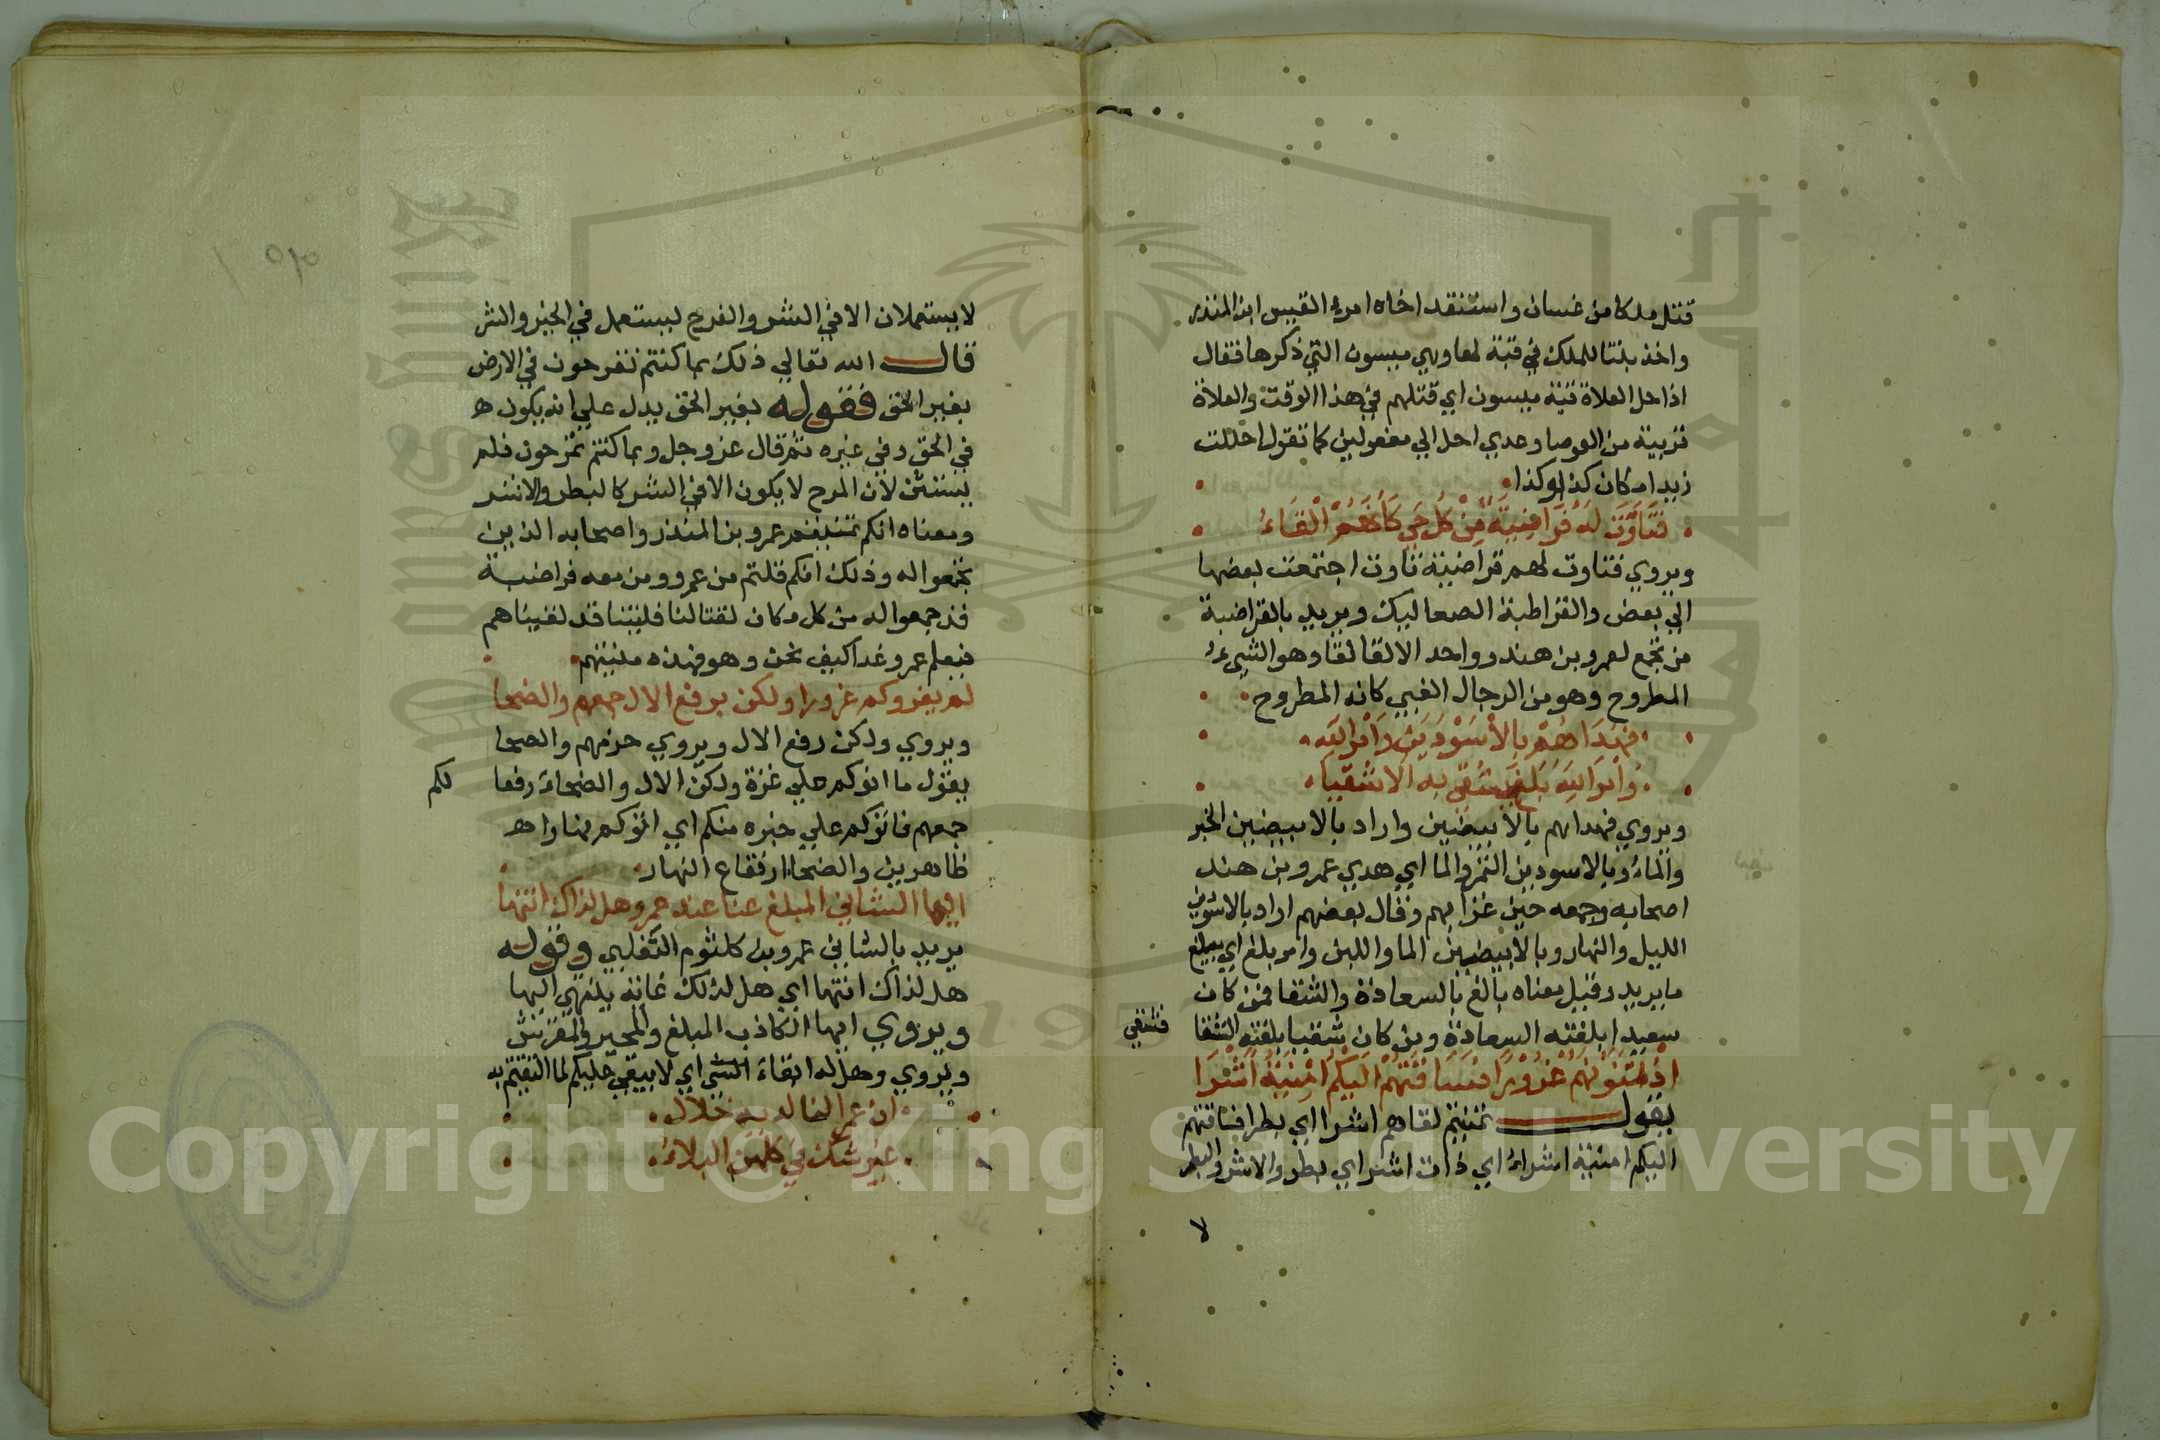 قتل ملكا من غسان واستنقد اخاه امرء القيس ابن المنذر
واخذ بنتا للملك في قبة لها وهي ميسون التي ذكرها فقال
اذ احل العلاة قبة ميسون اي قتلهم في هذا الوقت والعلاة
قريبة من العوصا وعدي احل الي مفعولين كما تقول احللت
زيدا مكان كذا وكذا
فَتَأَوَّتَ لَهُ قَرَاضِبَةٌ مِنْ كُلِّ حَيٍ كَأَنَّهُمْ الْقَاءُ
ويروي فتاوت لهم قراضبة تاوت اجتمعت بعضها
الي بعض والقراضبة الصعاليك ويريد بالقراضبة
من تجمع لعمرو بن هند وواحد الالقا لقا وهو الشيء
المطروح وهو من الرجال الغبي كانه المطروح
فَهَدَاهُمْ بِالأَسْوَدَيْنِ وَأَمْرُ اللَّهِ
وَأَمْرُ اللَّهِ بَلْغٌ يَشْقَى بِهِ الاشْقِيَا
ويروي فهداهم بالابيضين واراد بالابيضين الخبر
والماء وبالاسودين التمر والما اي هدي عمرو بن هند
اصحابه وجمعه حين غزا بهم وقال بعضهم اراد بالاسودين
الليل والنهار وبالابيضين الما واللبن وامر بلغ اي يبلغ
ما يريد وقيل معناه بالغ بالسعادة والشقا فمن كان
سعيدا بلغته السعادة ومن كان شقيا بلغته الشقا
فتشقي
اِذْ تَمَنَّوْنَهُمْ غُرُوْرًا فَسَاقَتْهُمْ الَيْكُمْ امْنِيَّةٌ اَشْرَا
يقول تمنيتم لقاهم اشرا اي بطرا فساقتهم
اليكم امنية اشراء اي ذات اشر اي بطر والاشر والبطر
لا
لا يستعملان الا في الشر والفرح ليستعمل في الخير والشر
قال الله تعالي ذلك بما كنتم تفرحون في الارض
بغير الحق فقوله بغير الحق يدل علي انه يكون
في الحق وفي غيره ثم قال عز وجل وبما كنتم تمرحون فلم
يستثن لان المرح لا يكون الا في الشر كالبطر والاشر
ومعناه انكم تمنيتم عمرو بن المنذر واصحابه الذين
تجمعوا له وذلك انكم قلتم من عمرو ومن معه قراضبة
قد جمعوا له من كل مكان لقتالنا فليتنا قد لقيناهم
فيعلم عمرو غدا كيف نحن وهو فهذه منيتهم
لم يغروكم غرورا ولكن يرفع الال جمعهم والضحا
ويروي ولكن رفع الال ويروي حزمهم والضحا
يقول ما اتوكم علي غزة ولكن الال والضحاء رفعا
لكم
جمعهم فاتوكم علي خبره منكم اي اتوكم نهارا
ظاهرين والضحاء ارتفاع النهار
ايها الشاني المبلغ عنا عند عمرو وهل لذاك انتها
يريد بالشاني عمرو بن كلثوم التغلبي وقوله
هل لذاك انتها اي هل لذلك غاية ينتهي اليها
ويروي ايها الكاذب المبلغ والمخبر والمقرش
ويروي وهل له ابقاء الشي اي لا يبقي عليكم لما القيتم به
ان عمرا لنا لديه خلال
غير شك في كلهن البلاء